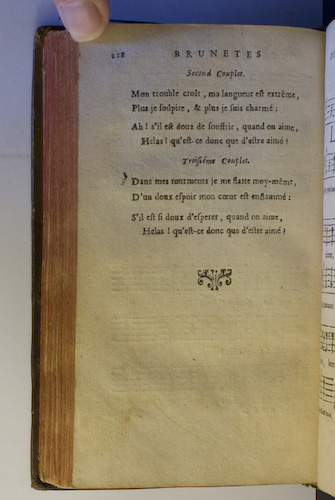 218 BRUNETES
Second Couplet.
Mon trouble croît, ma langueur est extrême,
Plus je soûpire, & plus je suis charmé :
Ah ! s'il est doux de souffrir, quand on aime,
Helas ! qu'est-ce donc que d'estre aimé ?
Troisiéme Couplet.
Dans mes tourments je me flatte moy-même,
D'un doux espoir mon cœur est enflammé :
S'il est si doux d'esperer, quand on aime,
Helas ! qu'est-ce donc que d'estre aimé ?